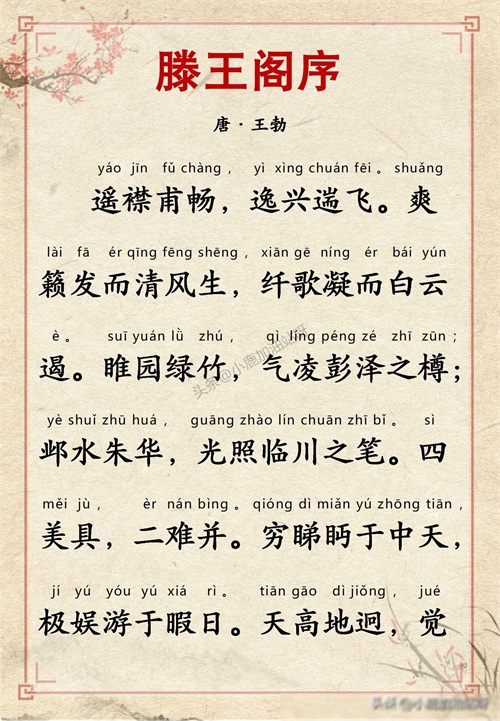 滕王阁序
唐·王勃
yáo jīn fǔ chàng， yì xìng chuán fēi。 shuǎng
遥襟甫畅，逸兴遄飞。爽
lài fā ér qīng fēng shēng，xiān gē níng ér bái yún
籁发而清风生，纤歌凝而白云
è。 suī yuán lǜ zhú， qì líng péng zé zhī zūn；
遏。睢园绿竹，气凌彭泽之樽；
yè shuǐ zhū huá， guāng zhào lín chuān zhī bǐ。 sì
邺水朱华，光照临川之笔。四
měi jù， èr nán bìng。qióng dì miǎn yú zhōng tiān，
美具，二难并。穷睇眄于中天，
jí yú yóu yú xiá rì。 tiān gāo dì jiǒng， jué
极娱游于暇日。天高地迥，觉
头条@小鹿加油站呀